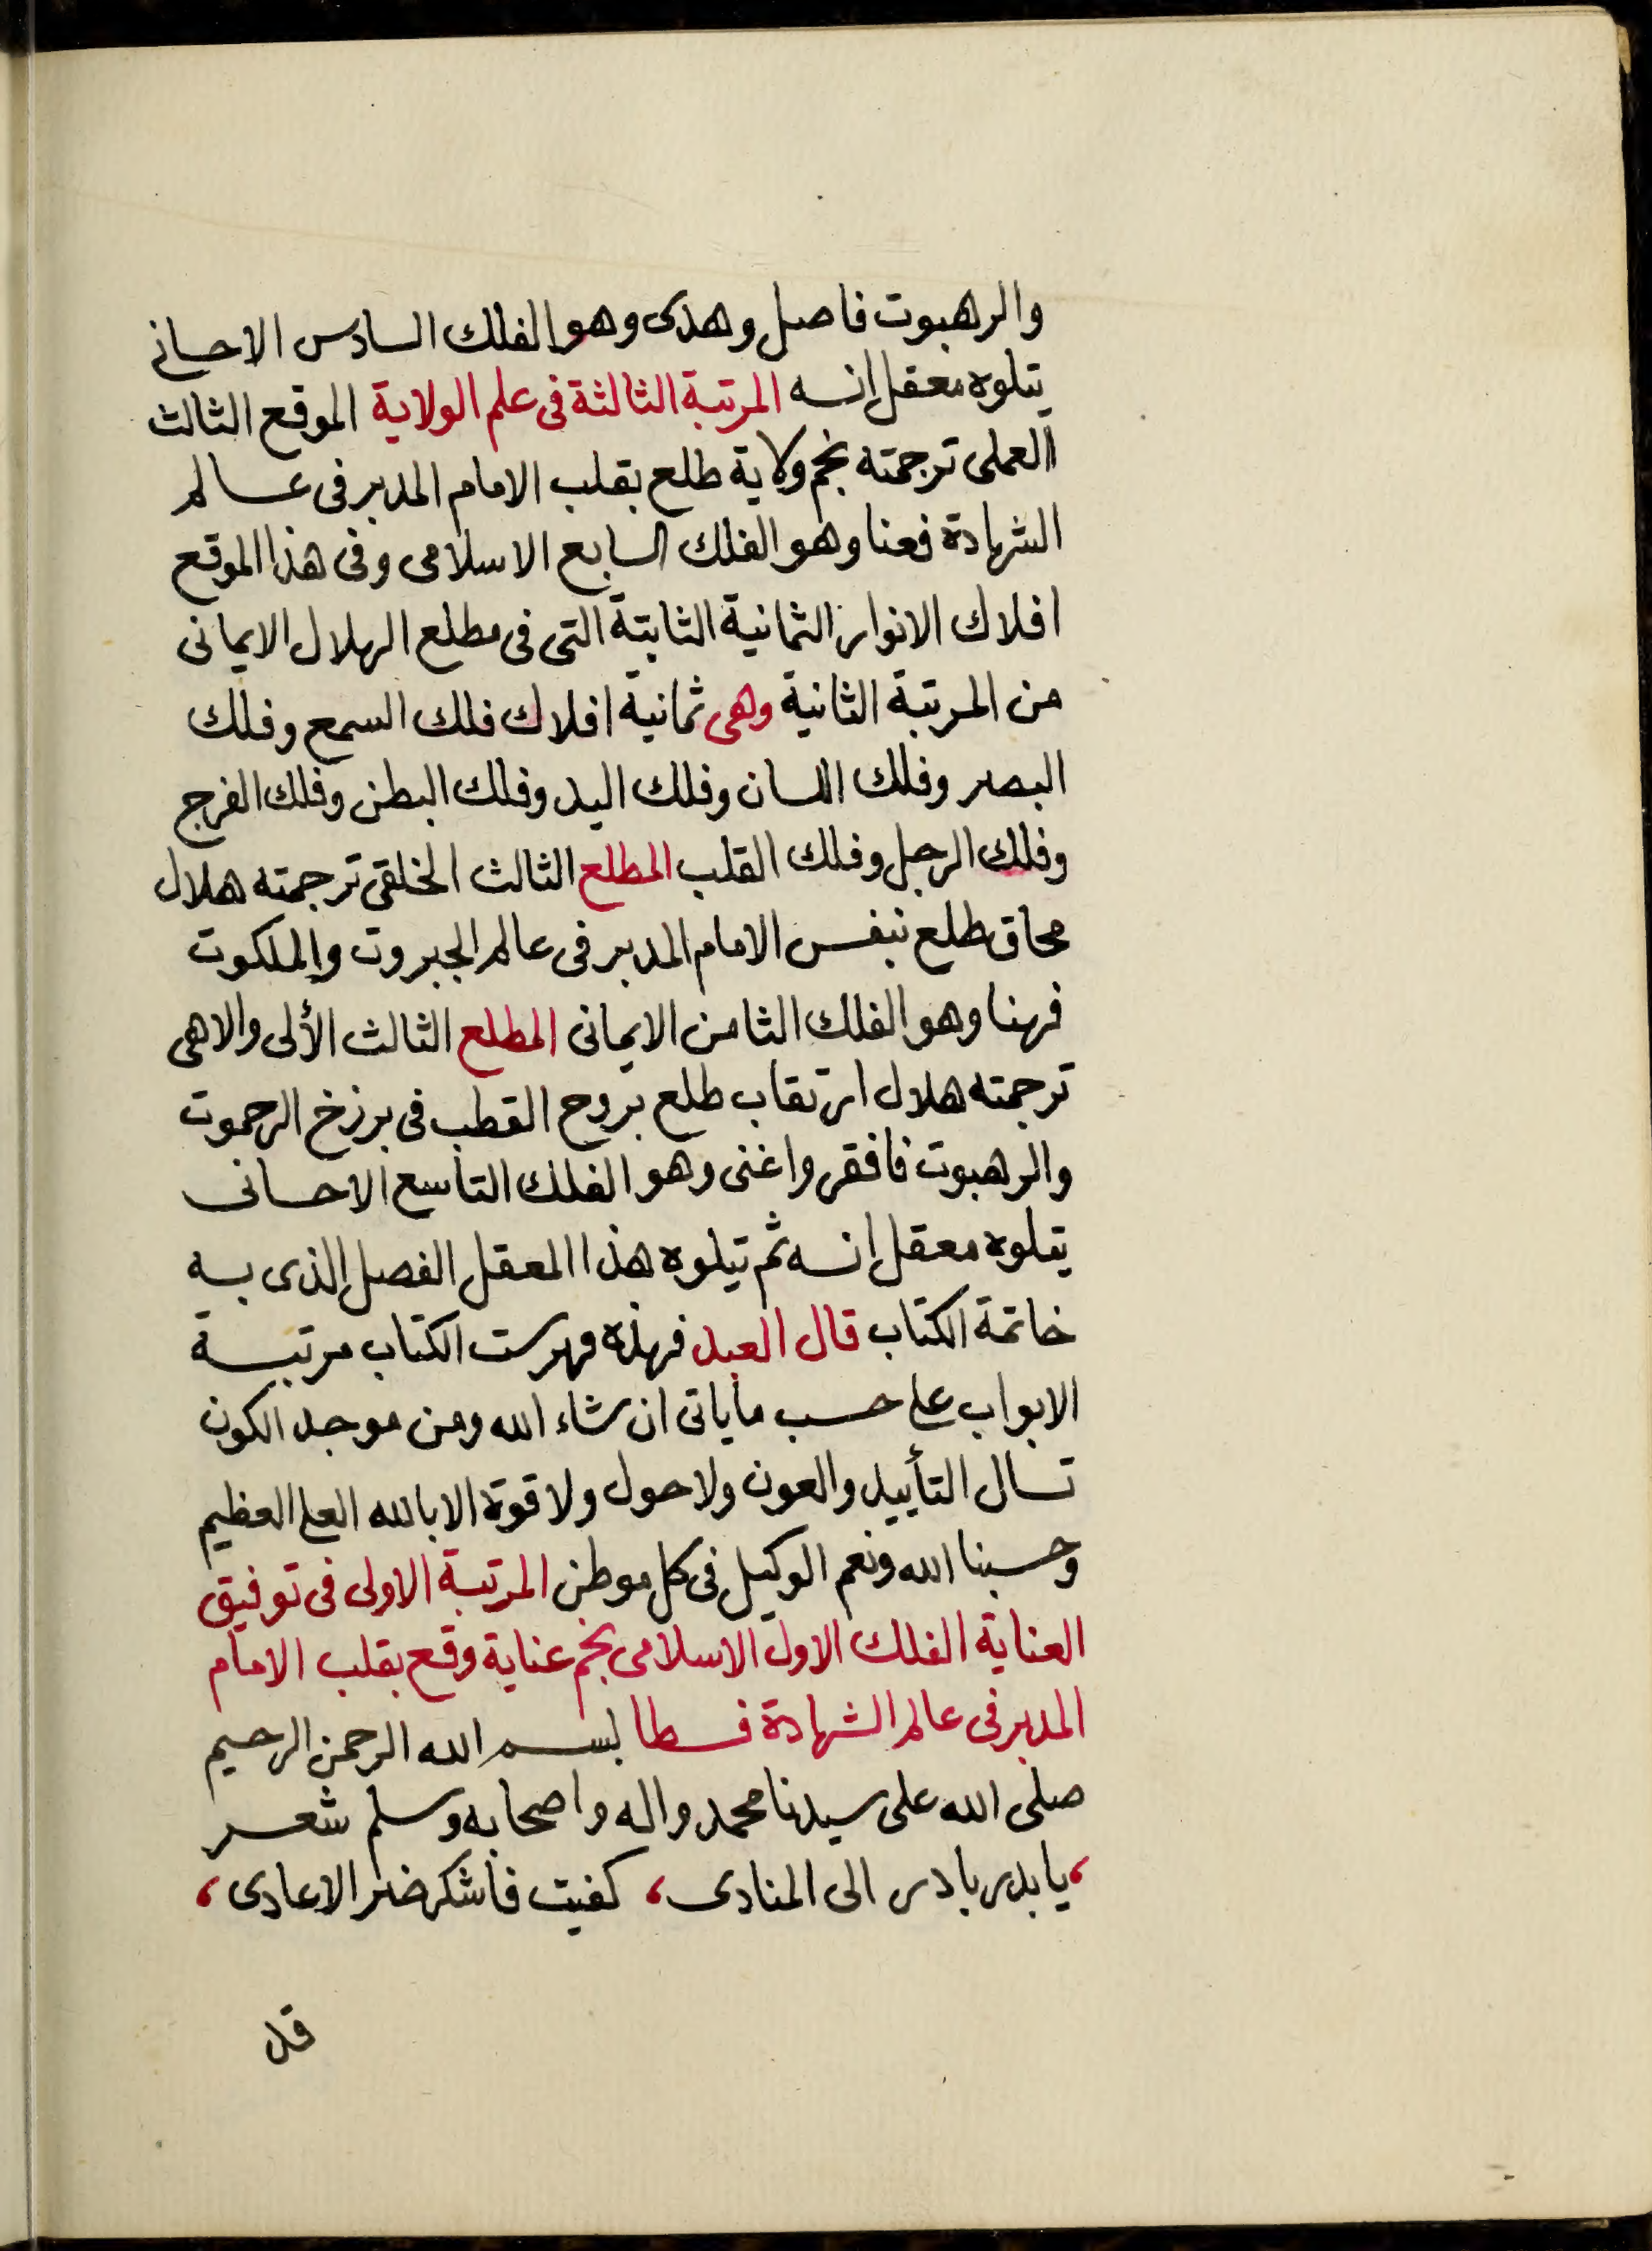 والرهبوت فاصل وهدى وهو الفلك السادس الاحسانى
يتلوه معقل انسه المرتبة الثالثة فى علم الولاية الموقع الثالث
العملى ترجمته نجم ولاية طلع بقلب الامام المدبر فى عالم
الشهادة فعنا وهو الفلك السابع الاسلامى وفى هذا الموقع
افلاك الانوار الثمانية الثابتة التى فى مطلع الهلال الايمانى
من المرتبة الثانية وهى ثمانية افلاك فلك السمع وفلك
البصر وفلك اللسان وفلك اليد وفلك البطن وفلك الفرج
وفلك الرجل وفلك القلب المطلع الثالث الخلقى ترجمته هلال
محاق طلع بنفس الامام المدبر فى عالم الجبروت والملكوت
فهنا وهو الفلك الثامن الايمانى المطلع الثالث الألى والاهى
ترجمته هلال ارتقاب طلع بروح القطب فى برزخ الرحموت
والرهبوت فافقر واغنى وهو الفلك التاسع الاحسانى
يتلوه معقل انسه ثم يتلوه هذا المعقل الفصل الذى به
خاتمة الكتاب قال العبد فهذه فهرست الكتاب مرتبة
الابواب على حسب ماياتى ان شاء الله ومن موجد الكون
نسال التأييد والعون ولا حول ولا قوة الا بالله العلى العظيم
وحسبنا الله ونعم الوكيل فى كل موطن المرتبة الاولى فى توفيق
العناية الفلك الاول الاسلامى نجم عناية وقع بقلب الامام
المدبر فى عالم الشهادة فسطا بسم الله الرحمن الرحيم
صلى الله على سيدنا محمد واله واصحابه وسلم شعر
، يا بدر بادر الى المنادى ، كفيت فاشكر ضر الاعادى ،
قل